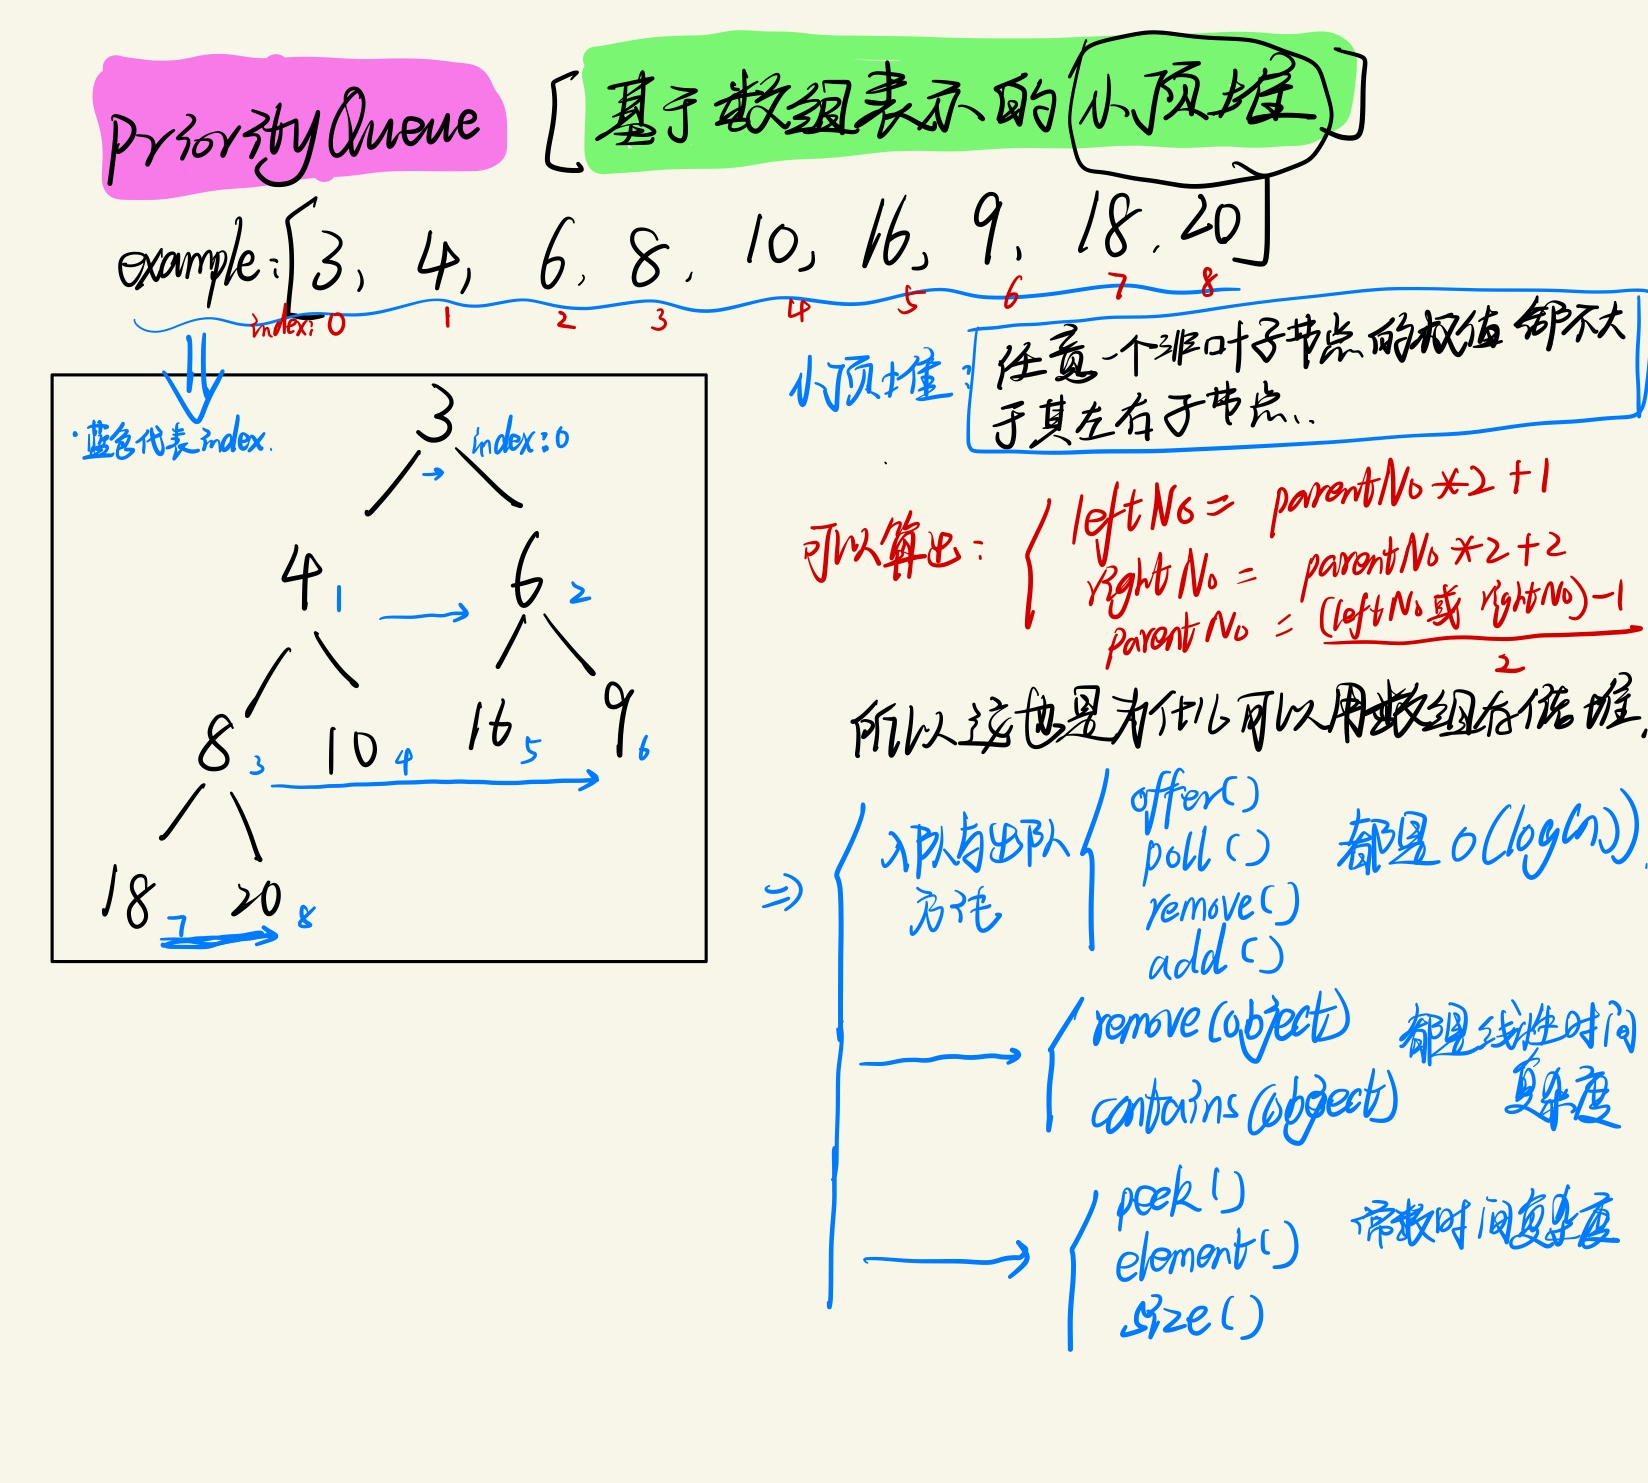 PriorityQueue [基于数组表示的小顶堆]
example:[3, 4, 6, 8, 10, 16, 9, 18, 20]
index: 0 1 2 3 4 5 6 7 8
小顶堆: 任意一个非叶子节点的权值都不大
于其左右子节点..
·蓝色代表index.
3 index:0
4 1 → 6 2
8 3 10 4 16 5 9 6
18 7 20 8
可以算出:
leftNo = parentNo*2+1
rightNo = parentNo*2+2
parentNo = (leftNo或rightNo)-1
2
所以这也是为什么可以用数组存储堆.
⇒ 入队与出队
方法
offer()
poll()
remove()
add()
都是O(log(n)).
remove(object)
contains(object)
都是线性时间
复杂度
peek()
element()
size()
常数时间复杂度